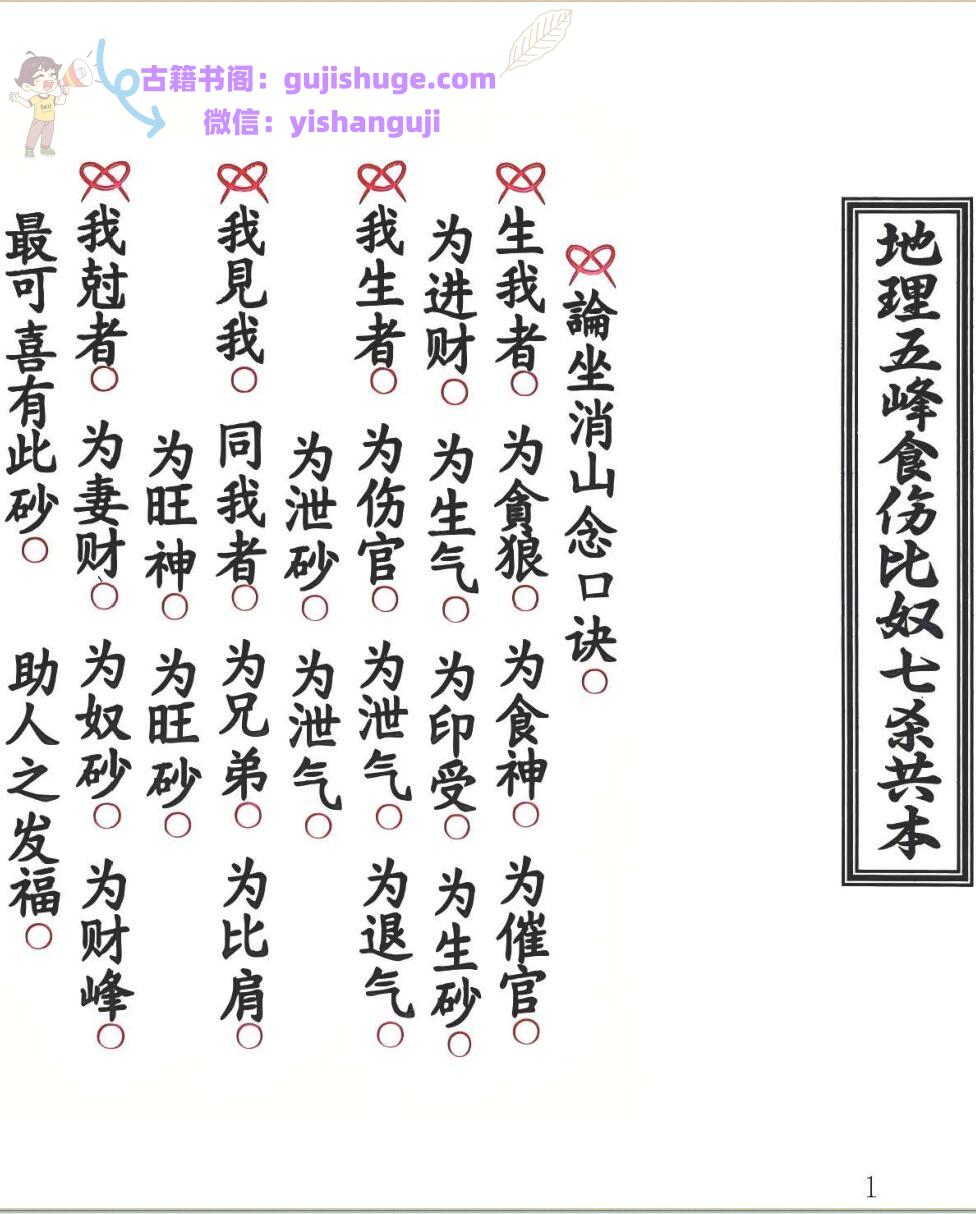 古籍书阁：gujishuge.com
微信：yishanguji
Sell
地理五峰食伤比奴七杀共本
論坐消山念口诀○
生我者○为貪狼○为食神○为催官○
为进财○为生气○为印受○为生砂○
我生者○为伤官○为泄气○为退气○
为泄砂○为泄气○
我見我○同我者○为兄弟○为比肩○
为旺神○为旺砂○
我尅者○为妻财○为奴砂○为财峰○
最可喜有此砂○助人之发福○
1